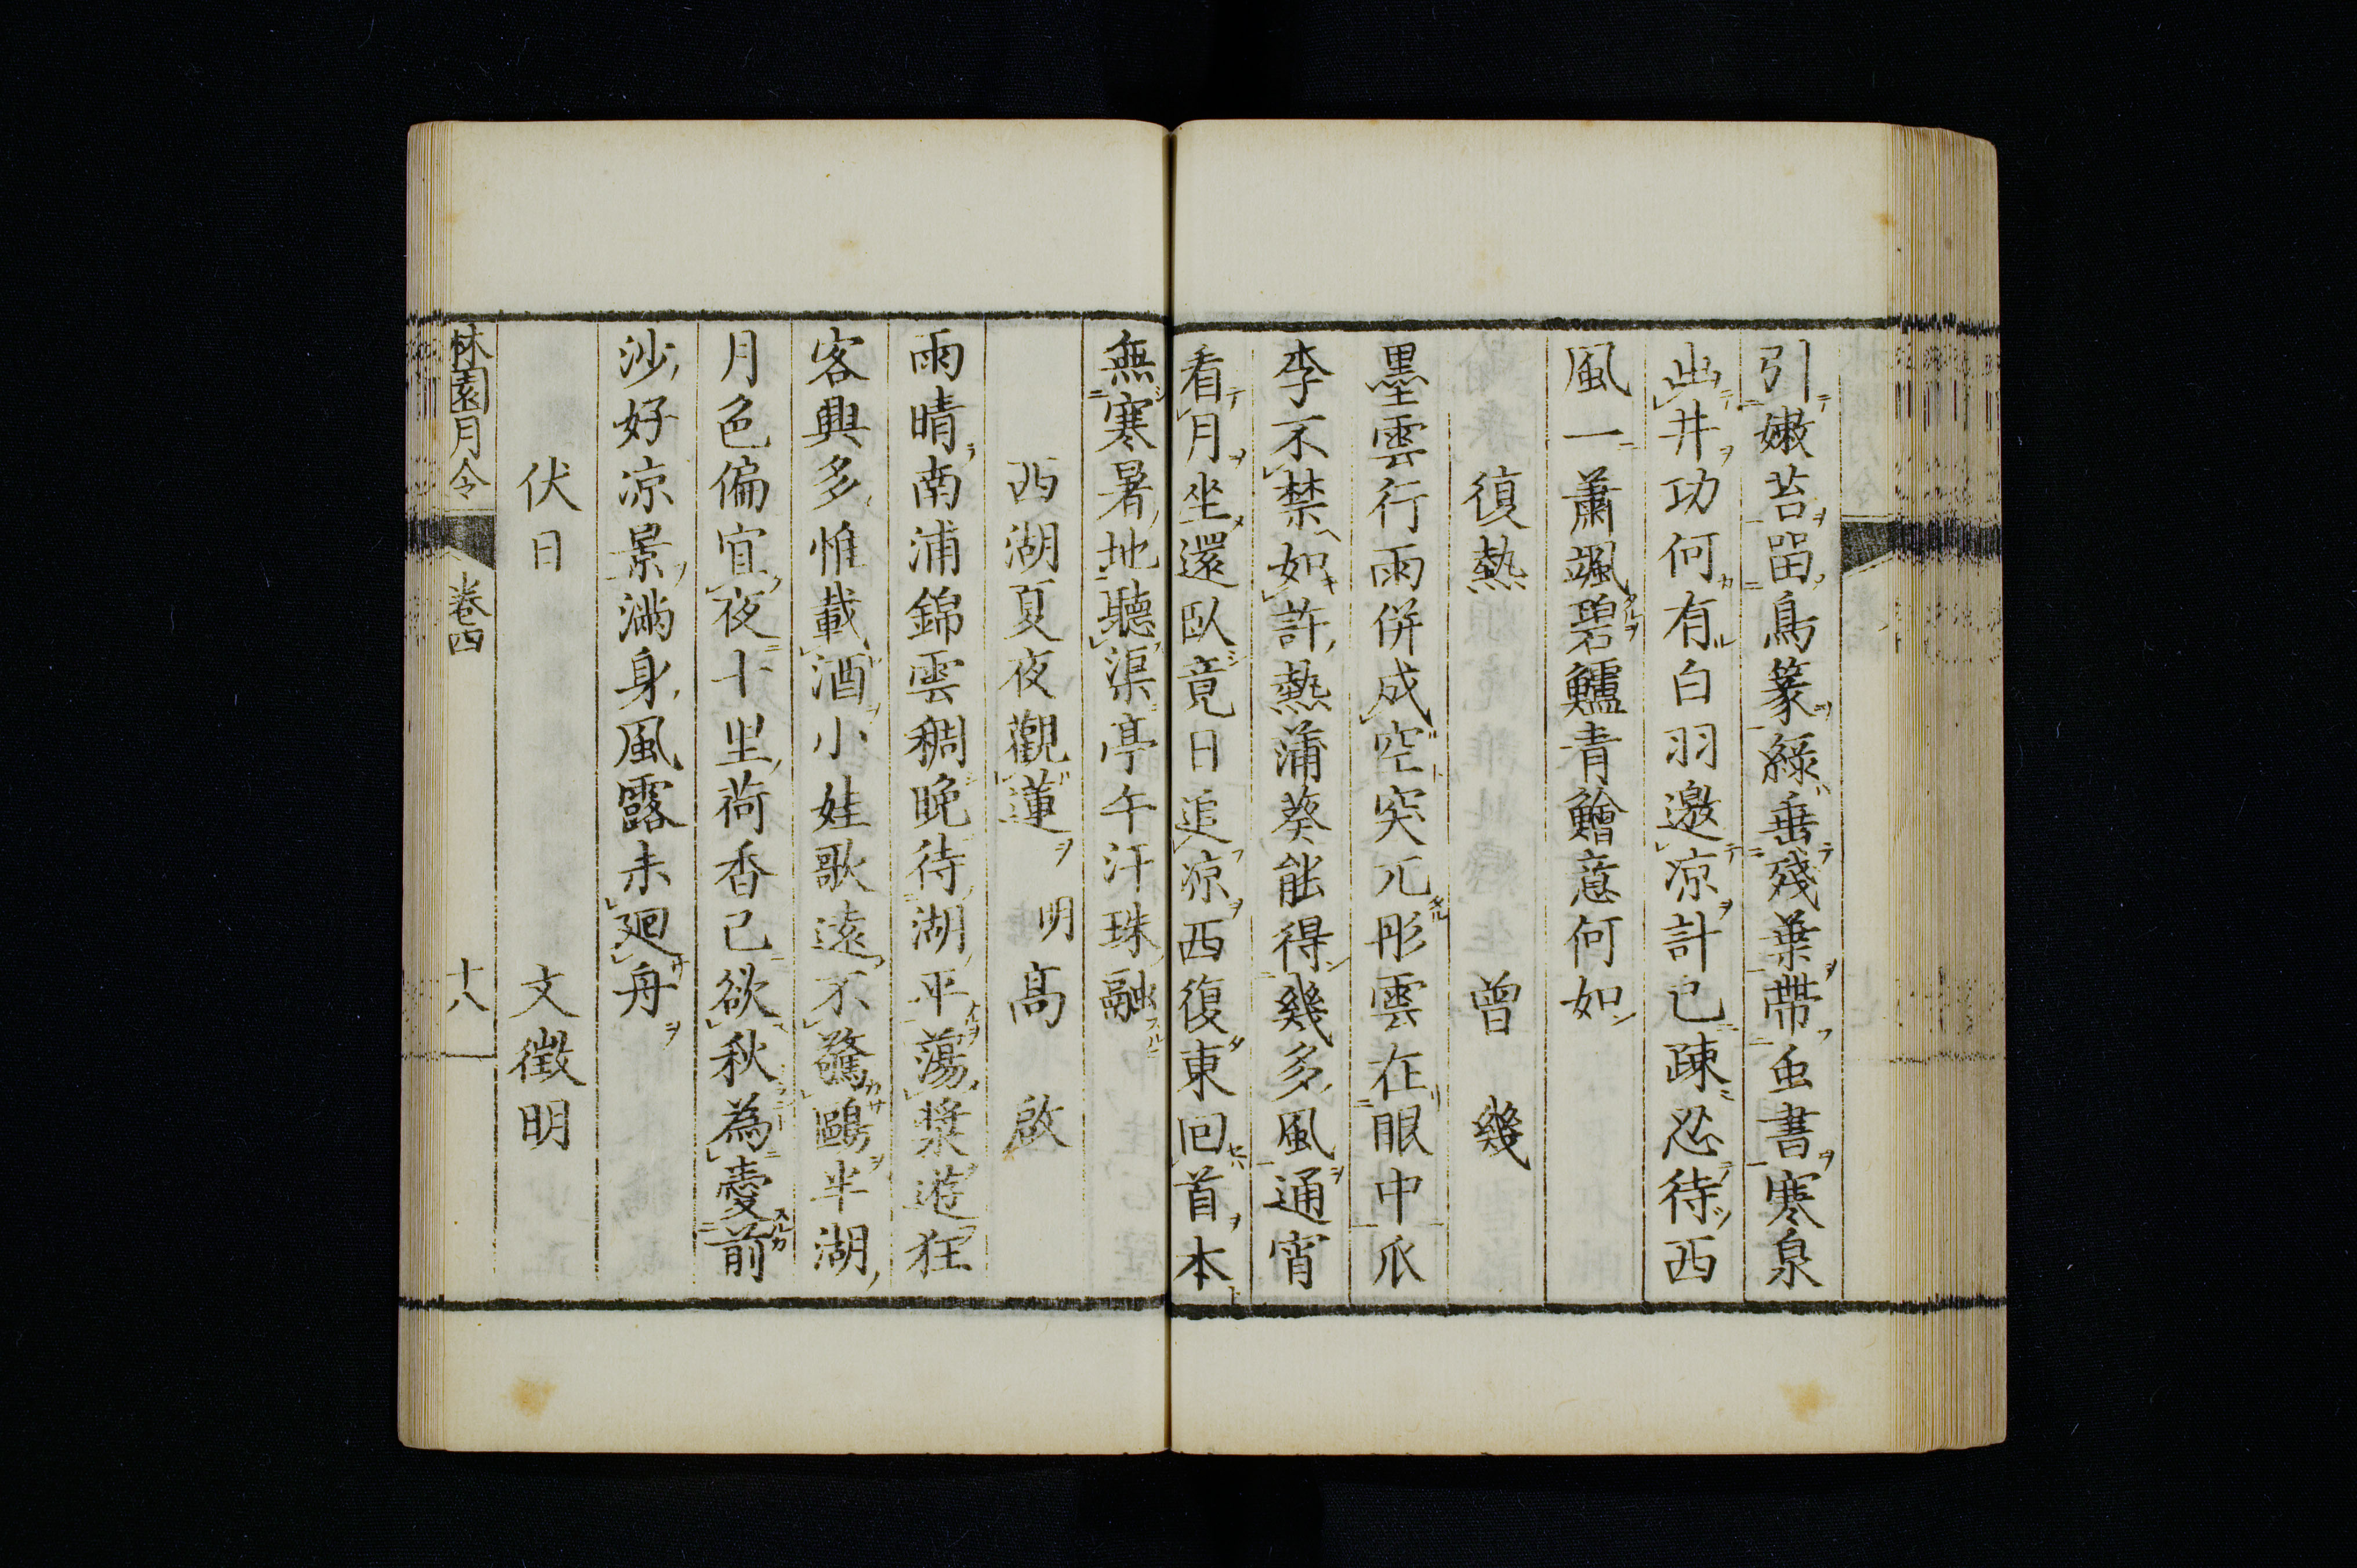 引嫩苔畱鳥篆綠垂殘葉帶虫書寒泉
出井功何有白羽邀凉計已疎忍待西
風一蕭颯碧鱸青鱠意何如
復熱　曾幾
墨雲行雨併成空突兀彤雲在眼中瓜
李不禁如許熱蒲葵能得幾多風通宵
看月坐還臥竟日追凉西復東回首本
無寒暑地聽渠亭午汗珠融
西湖夏夜觀蓮　明　高啟
雨晴南浦錦雲稠晚待湖平蕩槳遊狂
客興多惟載酒小娃歌遠不驚鷗半湖
月色偏宜夜十里荷香已欲秋為愛前
沙好凉景滿身風露未廻舟
伏日　文徵明
林園月令　卷四　十八